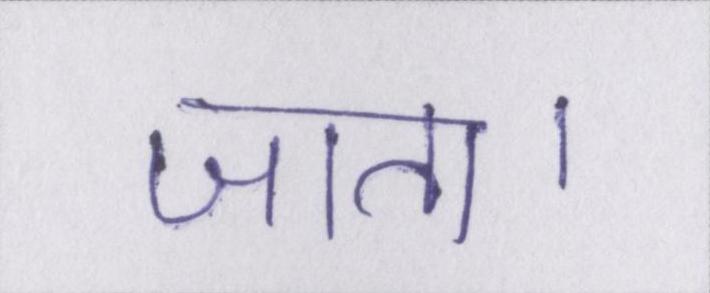 जाता।